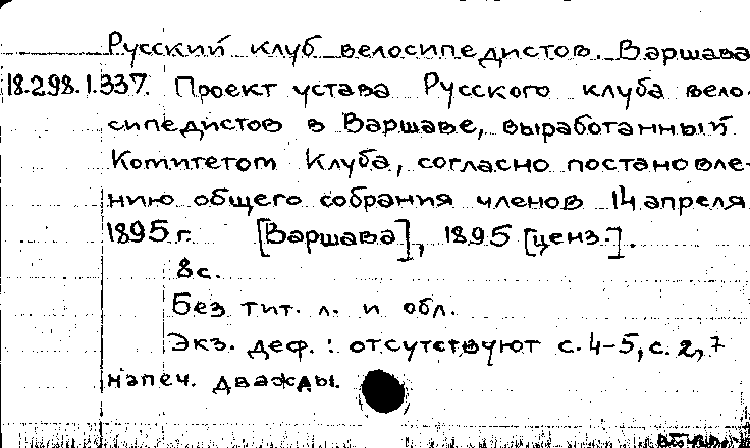 Русский клуб велосипедистов. Варшава
18.298.1.337. Проект устава Русского клуба вело-
сипедистов в Варшаве, выработанный
Комитетом Клуба, согласно постановле-
нию общего собрания членов 14 апреля
1895 г. [Варшава], 1895 [ценз.].
8 с.
Без тит. л. и обл.
Экз. деф.: отсутствуют с. 4-5, с. 2, 7
напеч. дважды.